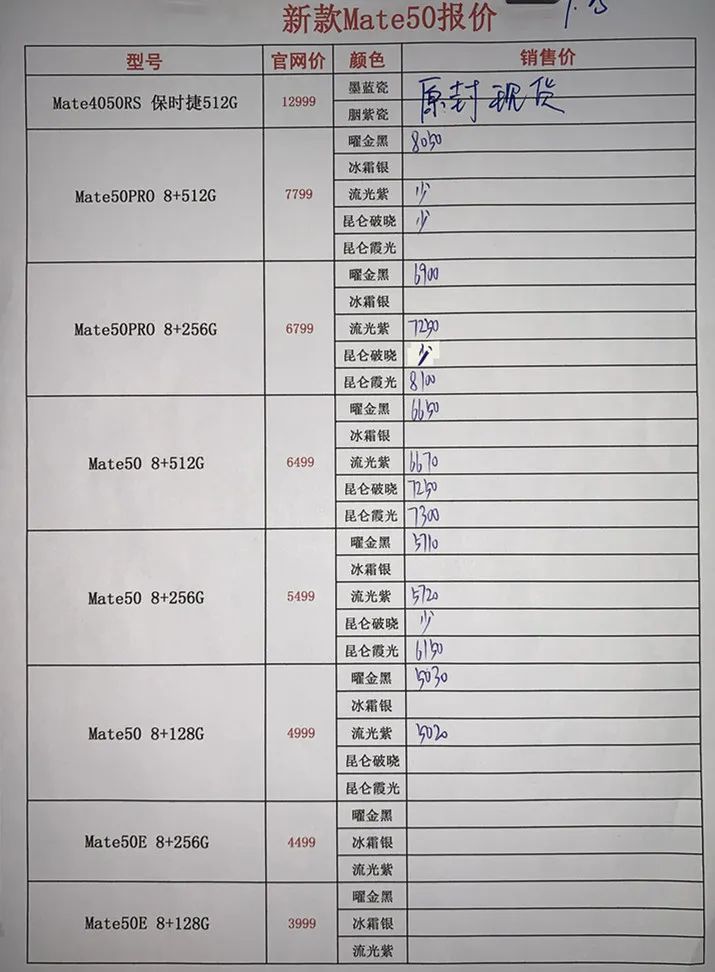 新款Mate50报价
型号 官网价 颜色 销售价
Mate4050RS 保时捷512G 12999 墨蓝瓷 原封现货
胭紫瓷
Mate50PRO 8+512G 7799 曜金黑 8050
冰霜银
流光紫 少
昆仑破晓 少
昆仑霞光
Mate50PRO 8+256G 6799 曜金黑 6900
冰霜银
流光紫 7250
昆仑破晓 少
昆仑霞光 8100
Mate50 8+512G 6499 曜金黑 6650
冰霜银
流光紫 6670
昆仑破晓 7250
昆仑霞光 7300
Mate50 8+256G 5499 曜金黑 5710
冰霜银
流光紫 5720
昆仑破晓 少
昆仑霞光 6150
Mate50 8+128G 4999 曜金黑 5030
冰霜银
流光紫 5020
昆仑破晓
昆仑霞光
Mate50E 8+256G 4499 曜金黑
冰霜银
流光紫
Mate50E 8+128G 3999 曜金黑
冰霜银
流光紫